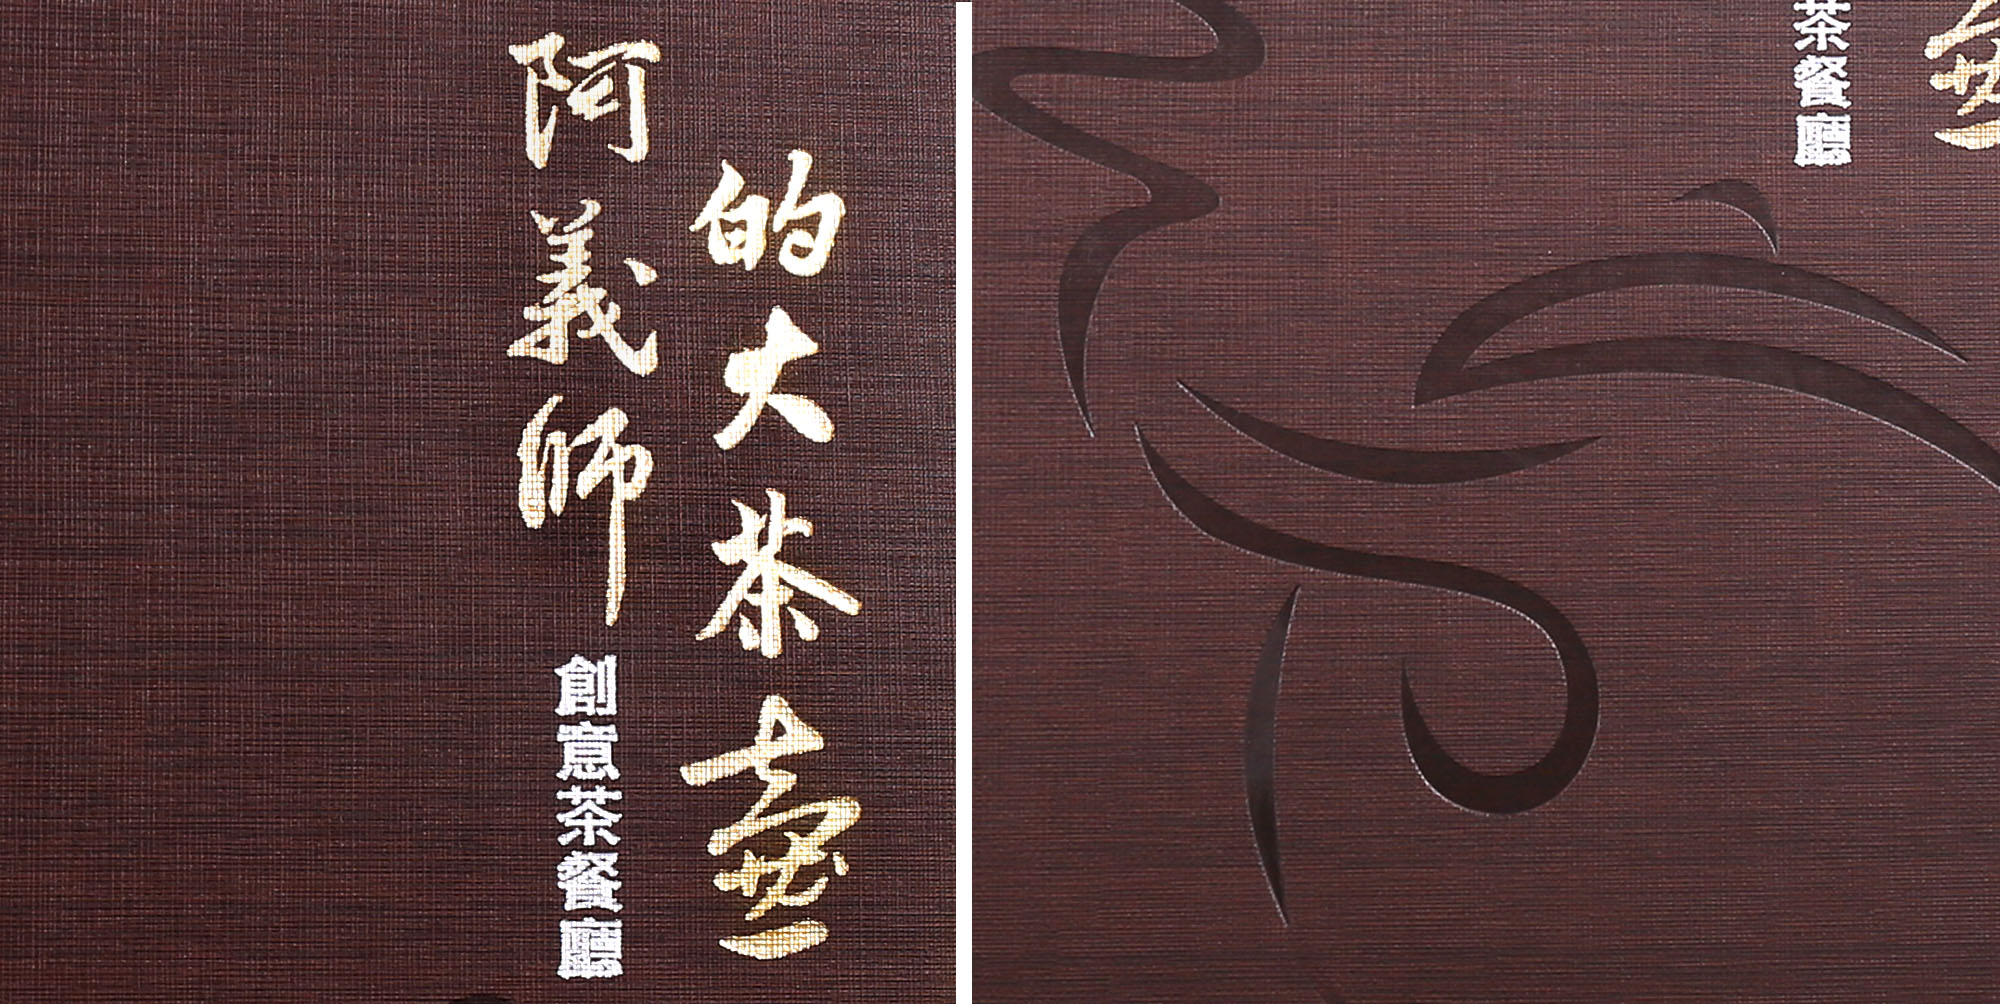 阿義師
的大茶壺
創意茶餐廳
茶餐廳